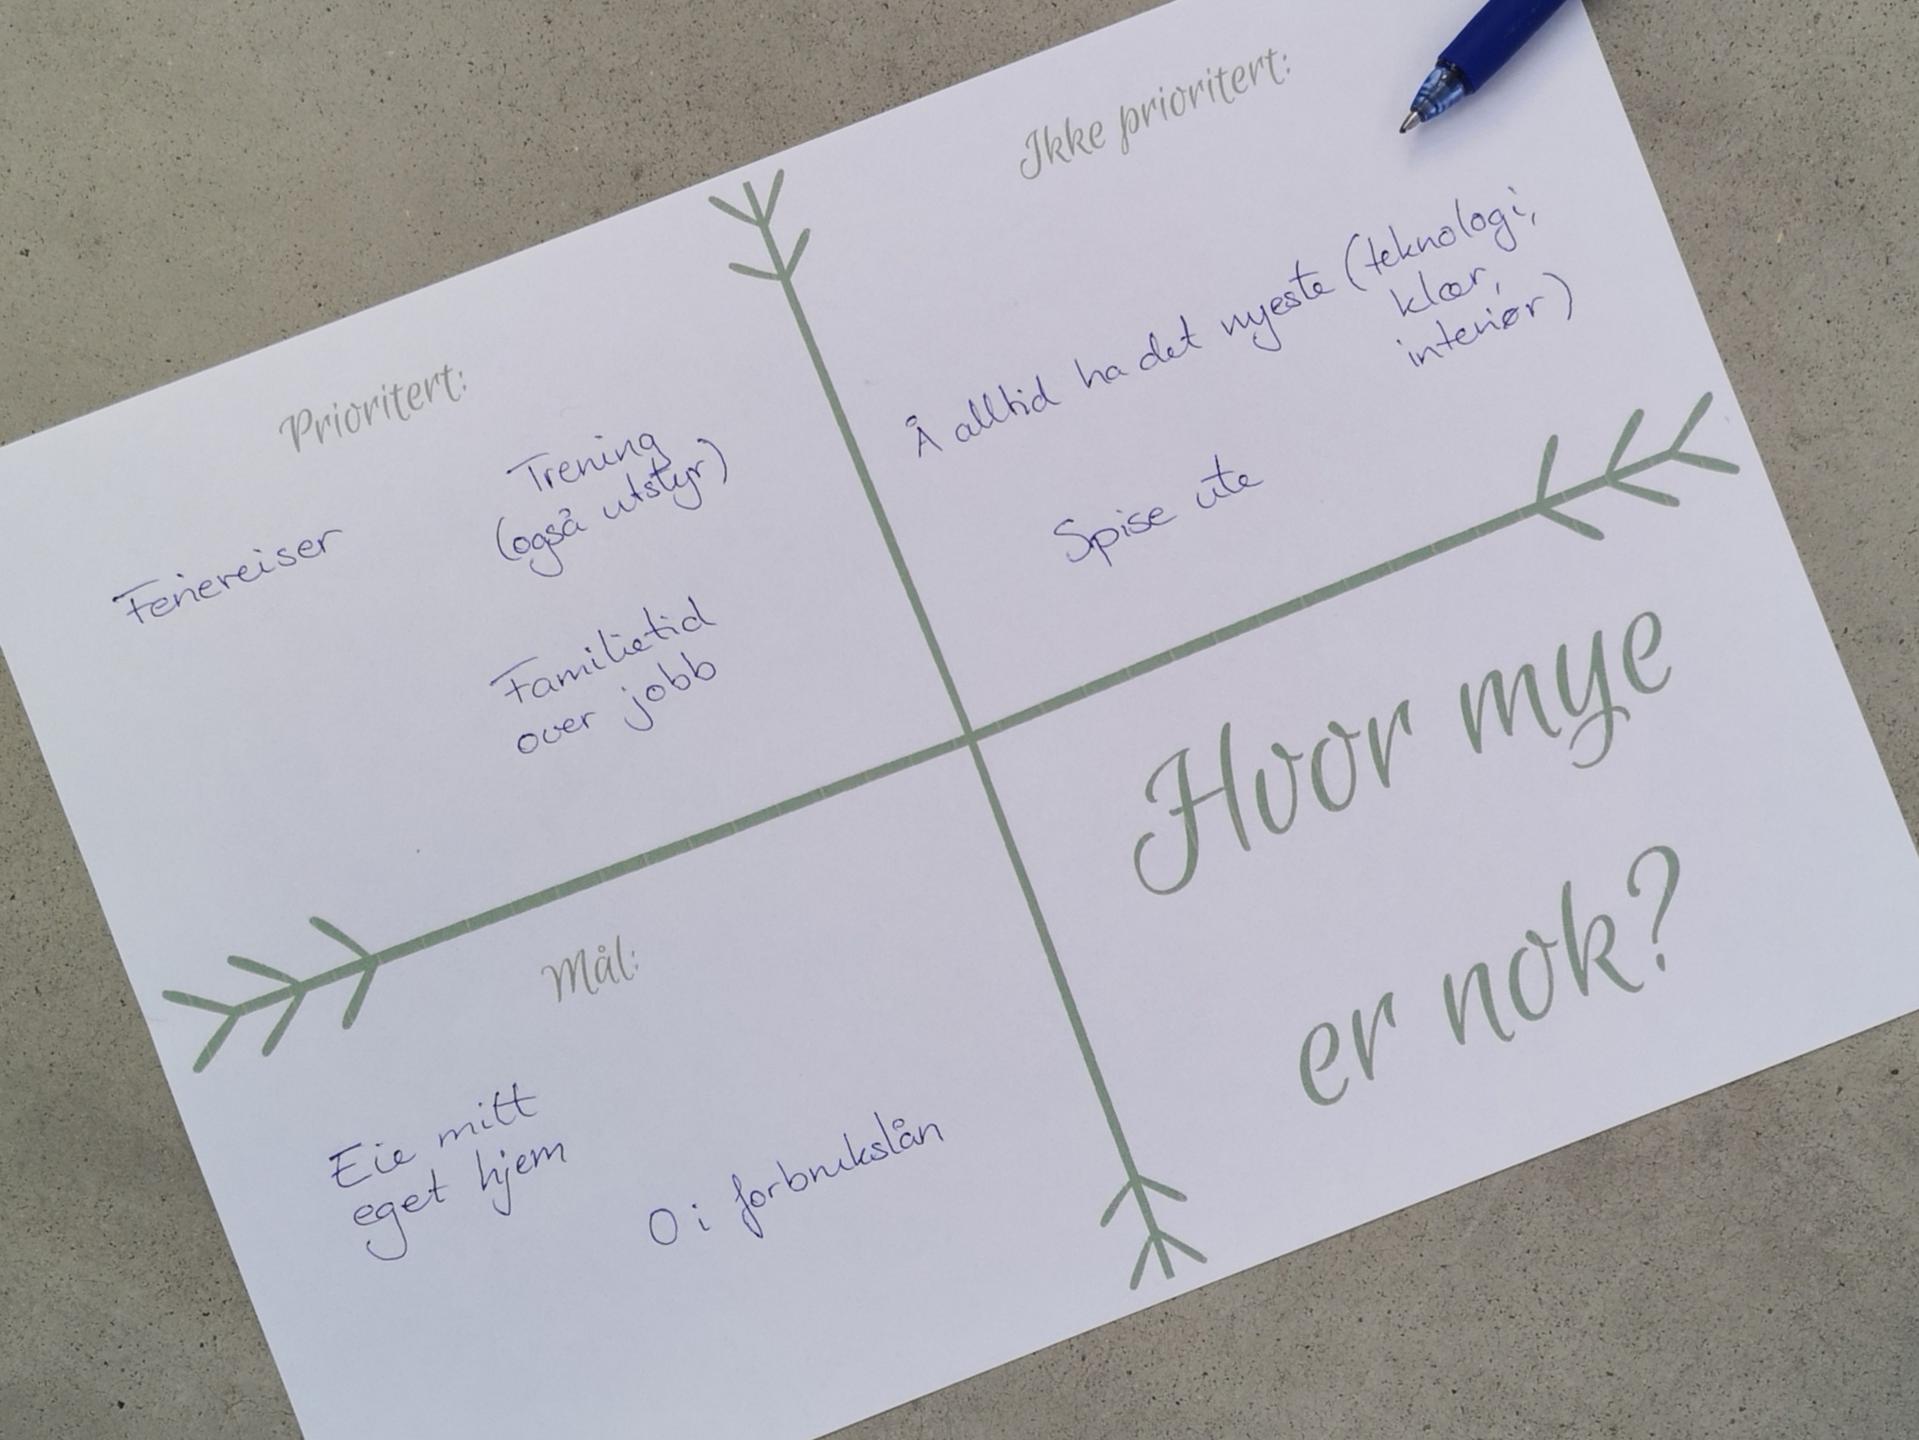 Prioritert:
Feriereiser
Trening
(også utstyr)
Familietid
over jobb
Ikke prioritert:
Å alltid ha det nyeste (teknologi,
klær,
interiør)
Spise ute
Mål:
Eie mitt
eget hjem
0 i forbrukslån
Hvor mye
er nok?